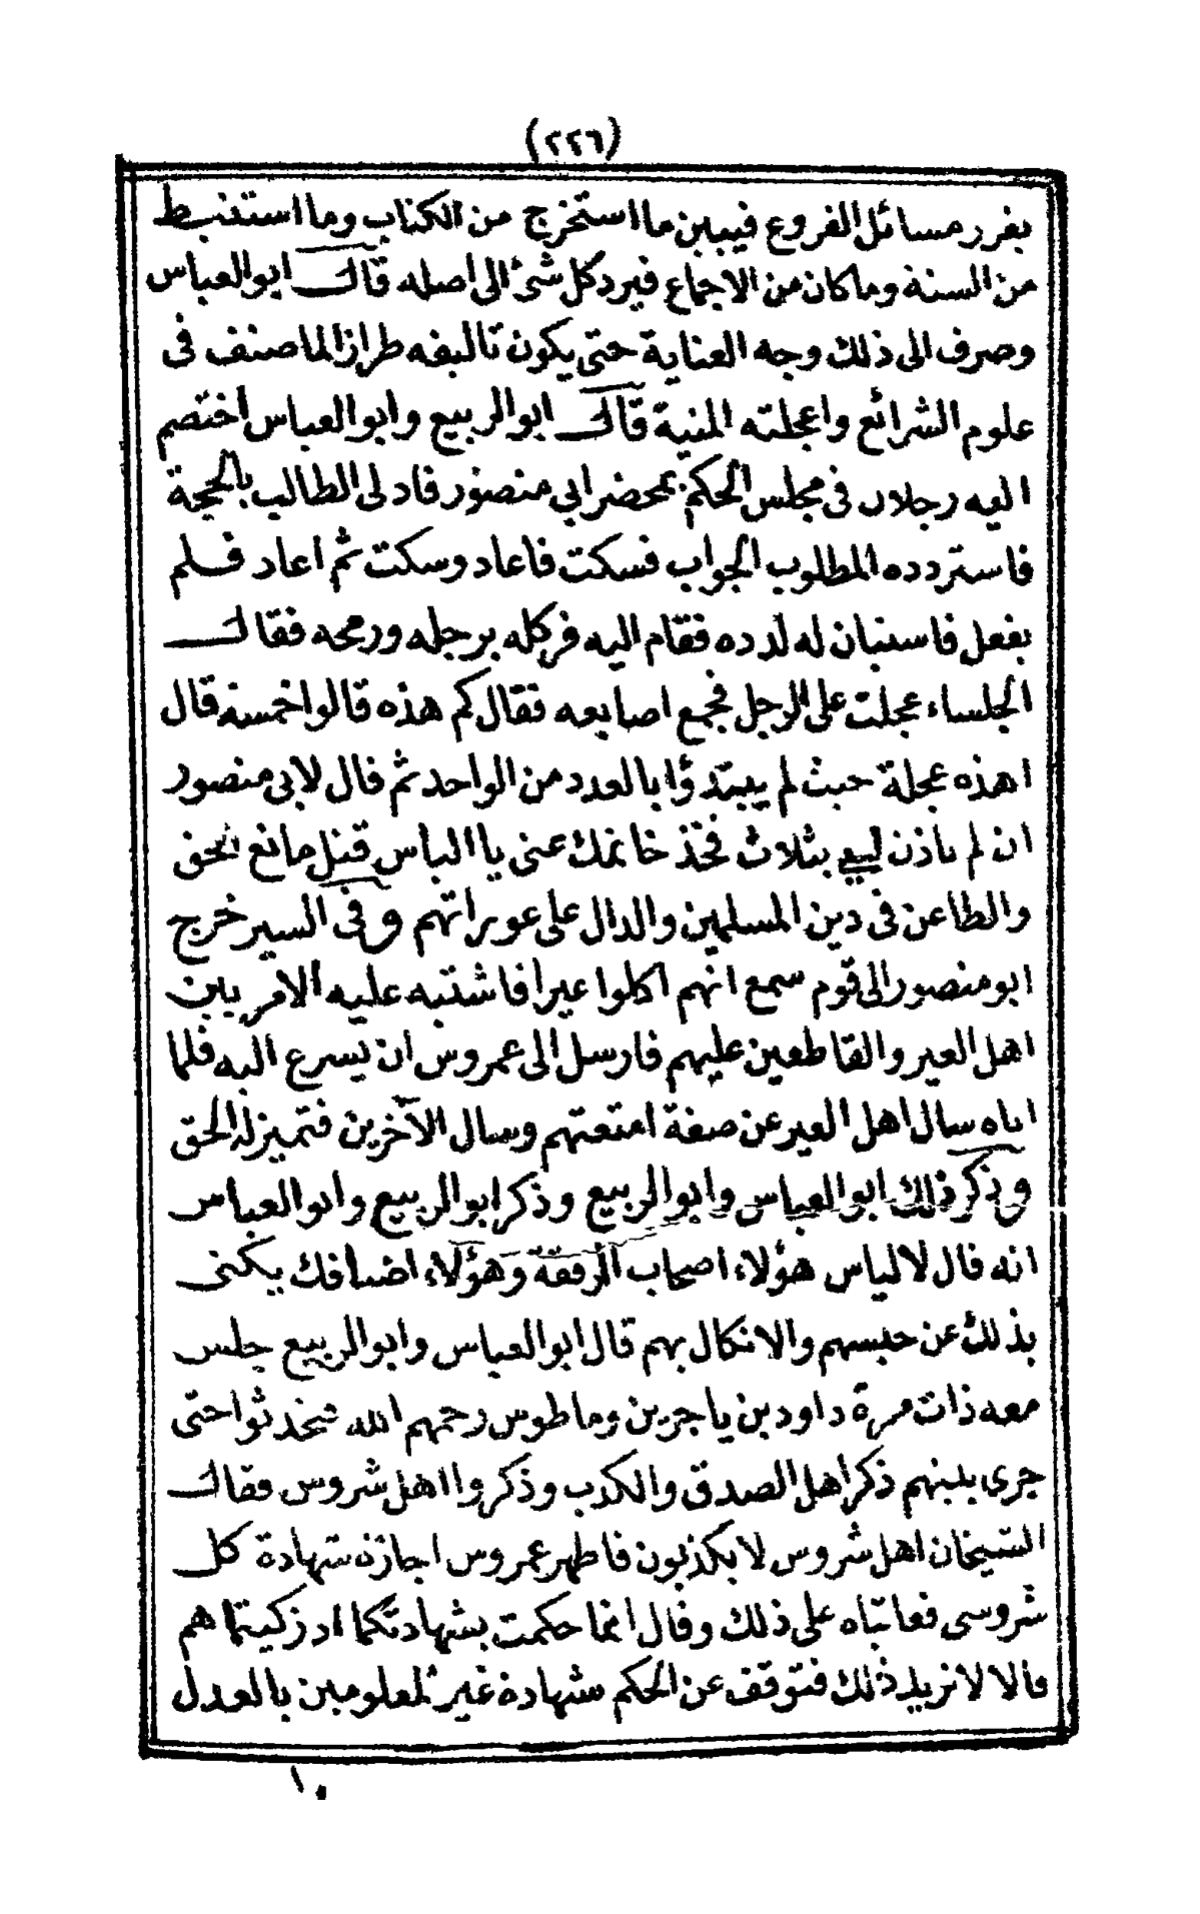 (٢٢٦)
يفرر مسائل الفروع فيبين ما استخرج من الكتاب وما استنبط
من السنة وما كان من الاجماع فيرد كل شئ الى اصله قال ابو العباس
وصرف الى ذلك وجه العناية حتى يكون تاليفه طرازا لما صنف فى
علوم الشرائع واعجلته المنية قال ابو الربيع وابو العباس اختصم
اليه رجلان فى مجلس الحكم بمحضر ابي منصور فادلى الطالب بالحجة
فاستردده المطلوب الجواب فسكت فاعاد وسكت ثم اعاد فلم
يفعل فاستبان له لدده فقام اليه فركله برجله ورمحه فقال
الجلساء عجلت على الرجل فجمع اصابعه فقال كم هذه قالوا خمسة قال
اهذه عجلة حيث لم يبتدؤا بالعدد من الواحد ثم قال لابى منصور
ان لم تاذن لى بثلاث فخذ خاتمك عنى يا الياس قتل مانع الحق
والطاعن فى دين المسلمين والدال على عوراتهم وفى السير خرج
ابو منصور الى قوم سمع انهم اكلوا عيرا فاشتبه عليه الامر بين
اهل العير والقاطعين عليهم فارسل الى عمروس ان يسرع اليه فلما
اتاه سال اهل العير عن صفة امتعتهم وسال الآخرين فتميز له الحق
وذكر ذلك ابو العباس وابو الربيع وذكر ابو الربيع وابو العباس
انه قال لالياس هؤلاء اصحاب الرفقة وهؤلاء اضيافك يكنى
بذلك عن حبسهم والانكال بهم قال ابو العباس وابو الربيع جلس
معه ذات مرة داود بن ياجرين وماطوس رحمهم الله فتحدثوا حتى
جرى بينهم ذكر اهل الصدق والكذب وذكروا اهل شروس فقال
الشيخان اهل شروس لا يكذبون فاظهر عمروس اجازة شهادة كل
شروسى فعاتباه على ذلك وقال انما حكمت بشهادتكما اذ زكيتماهم
قالا لا نريد ذلك فتوقف عن الحكم شهادة غير المعلومين بالعدل